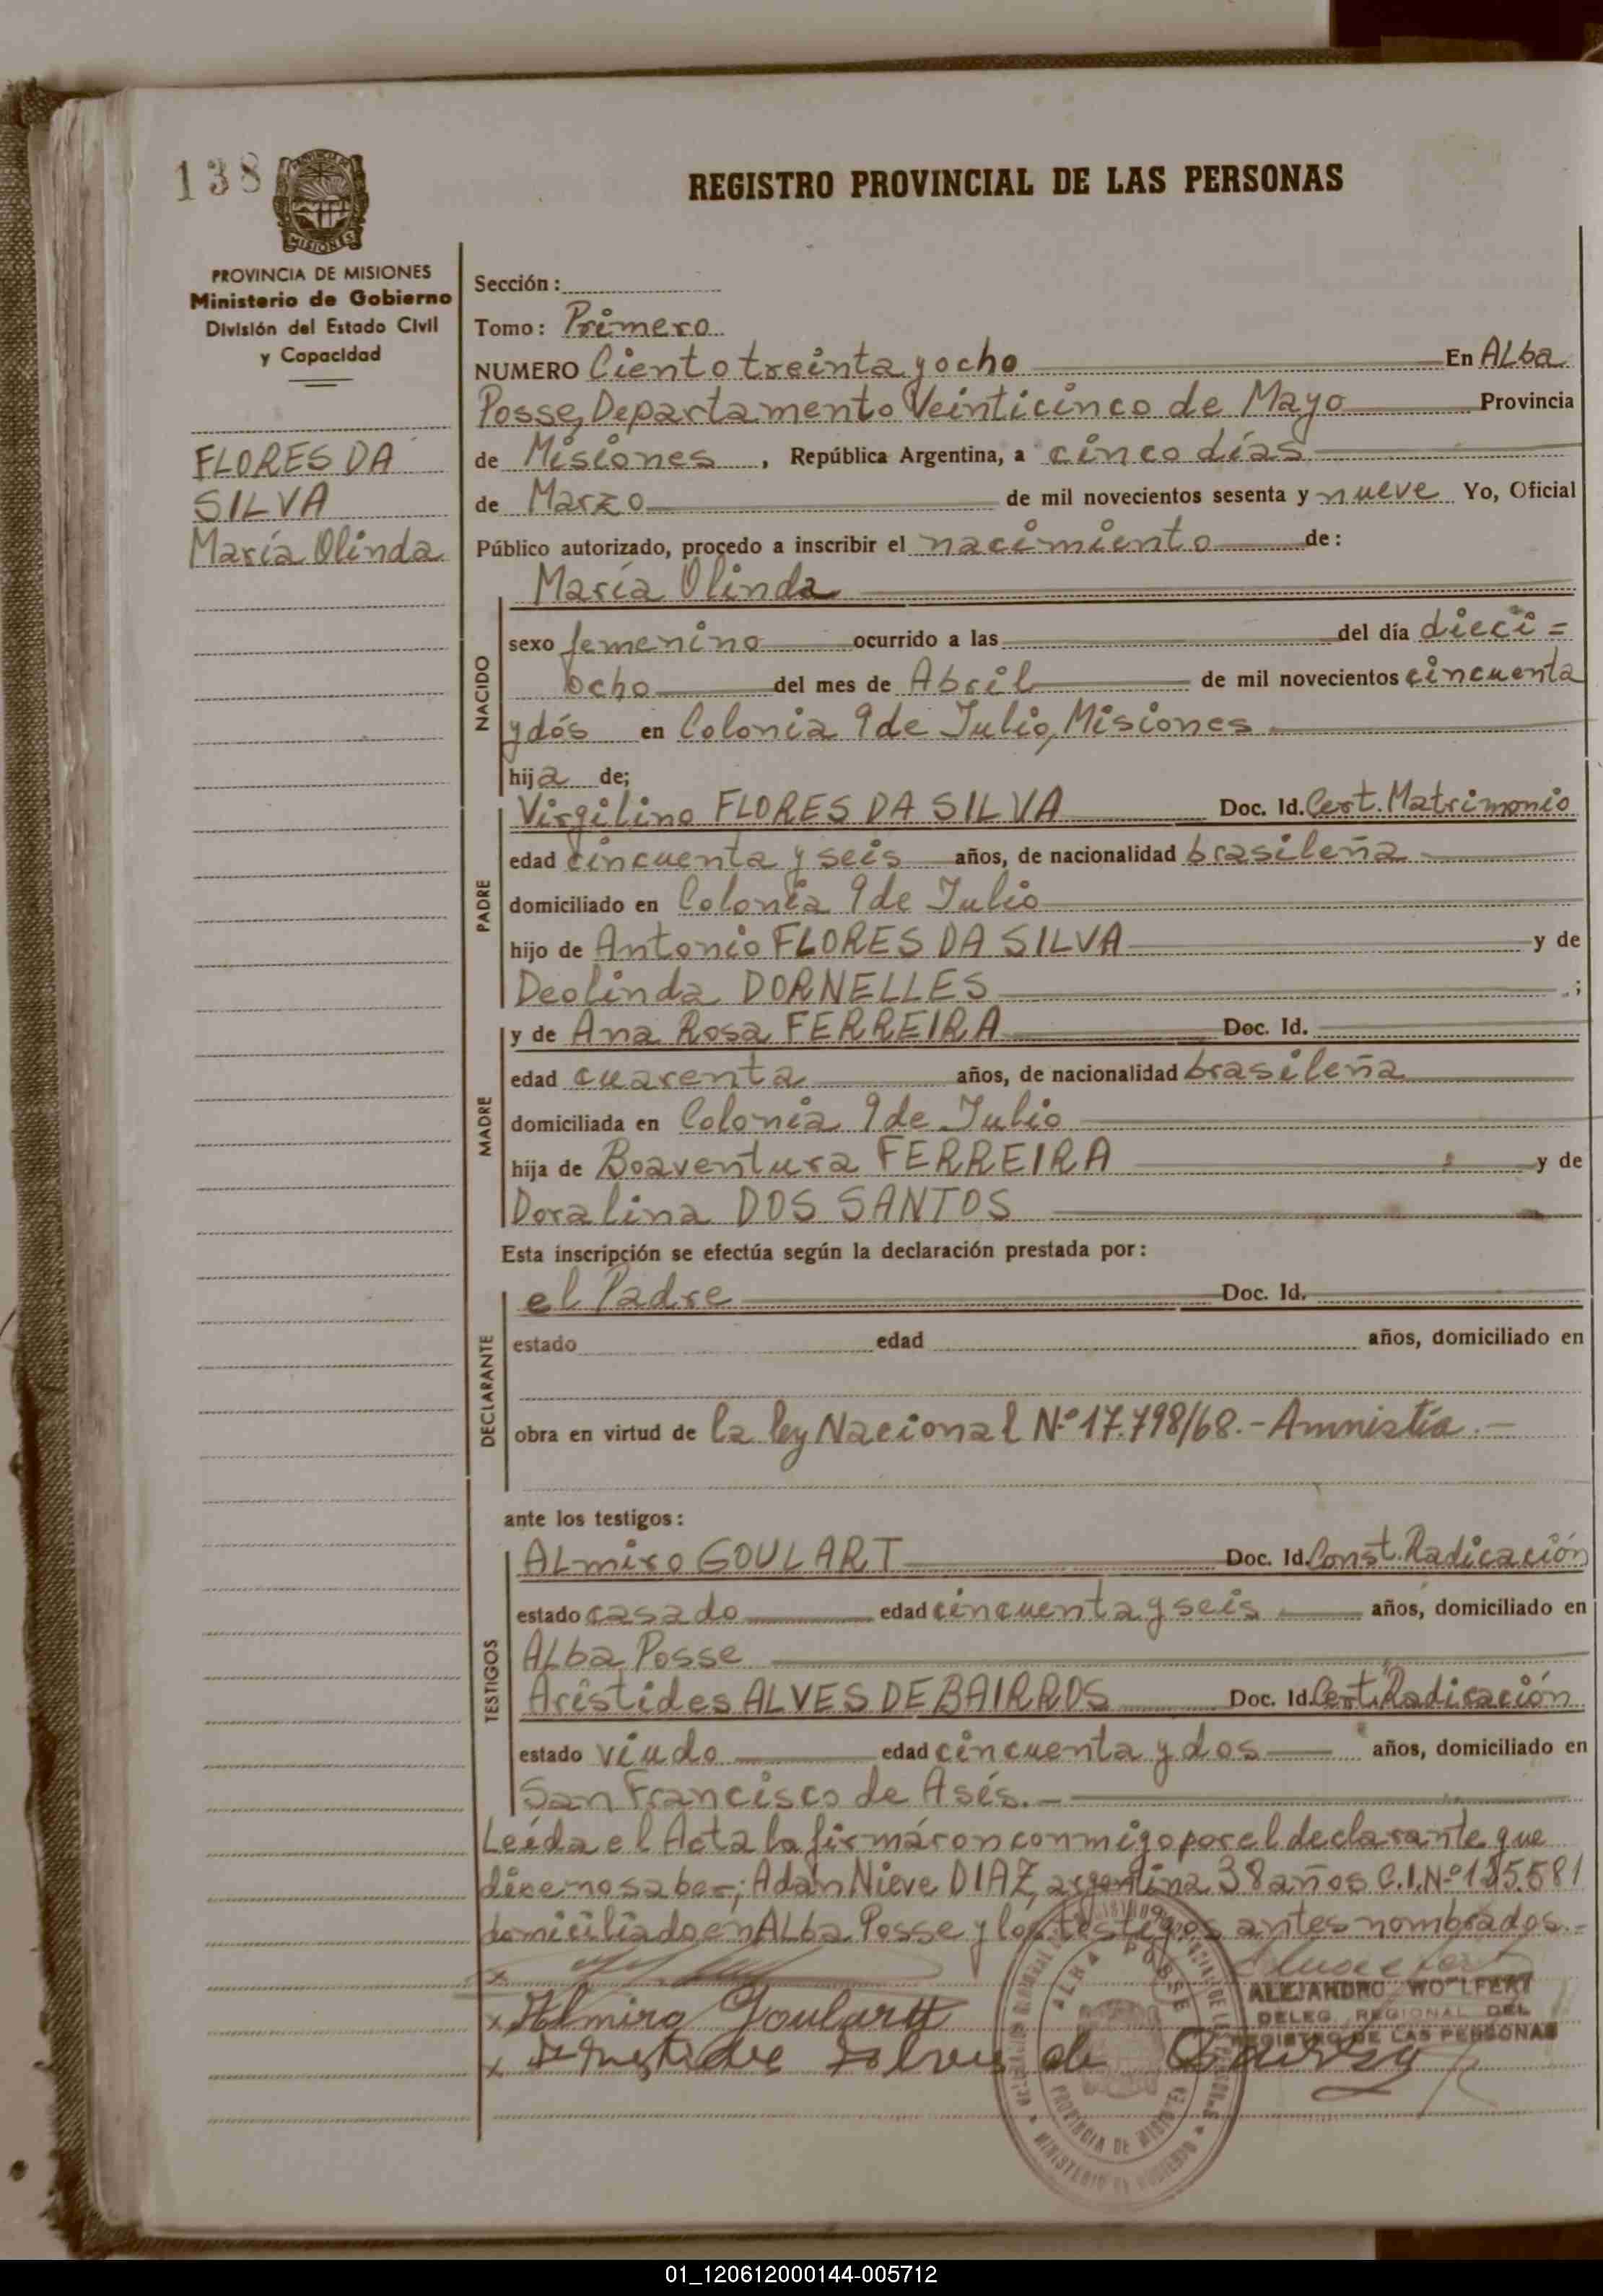 138
REGISTRO PROVINCIAL DE LAS PERSONAS
MISIONES
PROVINCIA DE MISIONES
Ministerio de Gobierno
División del Estado Civil
y Capacidad
FLORES DA
SILVA
María Olinda
Sección:
Tomo: Primero
NUMERO Ciento treinta y ocho En Alba
Posse, Departamento Veinticinco de Mayo Provincia
de Misiones, República Argentina, a cinco días
de Marzo de mil novecientos sesenta y nueve Yo, Oficial
Público autorizado, procedo a inscribir el nacimiento de:
María Olinda
NACIDO
sexo femenino ocurrido a las del día dieci=
ocho del mes de Abril de mil novecientos cincuenta
y dós en Colonia 9 de Julio, Misiones
hija de;
PADRE
Virgilino FLORES DA SILVA Doc. Id. Cert. Matrimonio
edad cincuenta y seis años, de nacionalidad brasileña
domiciliado en Colonia 9 de Julio
hijo de Antonio FLORES DA SILVA y de
Deolinda DORNELLES ;
MADRE
y de Ana Rosa FERREIRA Doc. Id.
edad cuarenta años, de nacionalidad brasileña
domiciliada en Colonia 9 de Julio
hija de Boaventura FERREIRA y de
Doralina DOS SANTOS
Esta inscripción se efectúa según la declaración prestada por:
DECLARANTE
el Padre Doc. Id.
estado edad años, domiciliado en
obra en virtud de la ley Nacional Nº 17.798/68.- Amnistía.-
ante los testigos:
TESTIGOS
Almiro GOULART Doc. Id. Const. Radicación
estado casado edad cincuenta y seis años, domiciliado en
Alba Posse
Arístides ALVES DE BAIRROS Doc. Id. Cert. Radicación
estado viudo edad cincuenta y dos años, domiciliado en
San Francisco de Asís.-
Leída el Acta la firmáron conmigo por el declarante que
dice no saber; Adán Nieve DIAZ, argentina 38 años C.I. Nº 185.581
domiciliado en Alba Posse y los testigos antes nombrados.-
x
x Almiro Goulart
x Aristides Alves de
ALEJANDRO WOLFERT
DELEG. REGIONAL DEL
REGISTRO DE LAS PERSONAS
ALBA POSSE
PROVINCIA DE MISIONES
MINISTERIO DE GOBIERNO
01_120612000144-005712